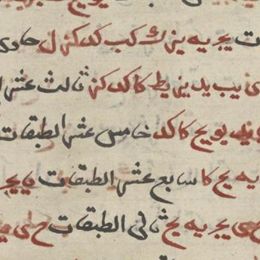 ت يج يه يز ك كب كد كز ل حاوى
يب يد يز يط كا كد كز ثالث عشر
يد يو يح كا كد خامس عشر الطبقات
يه يح كا سابع عشر الطبقات يج
ى يج يه يح ثانى الطبقات ح ى